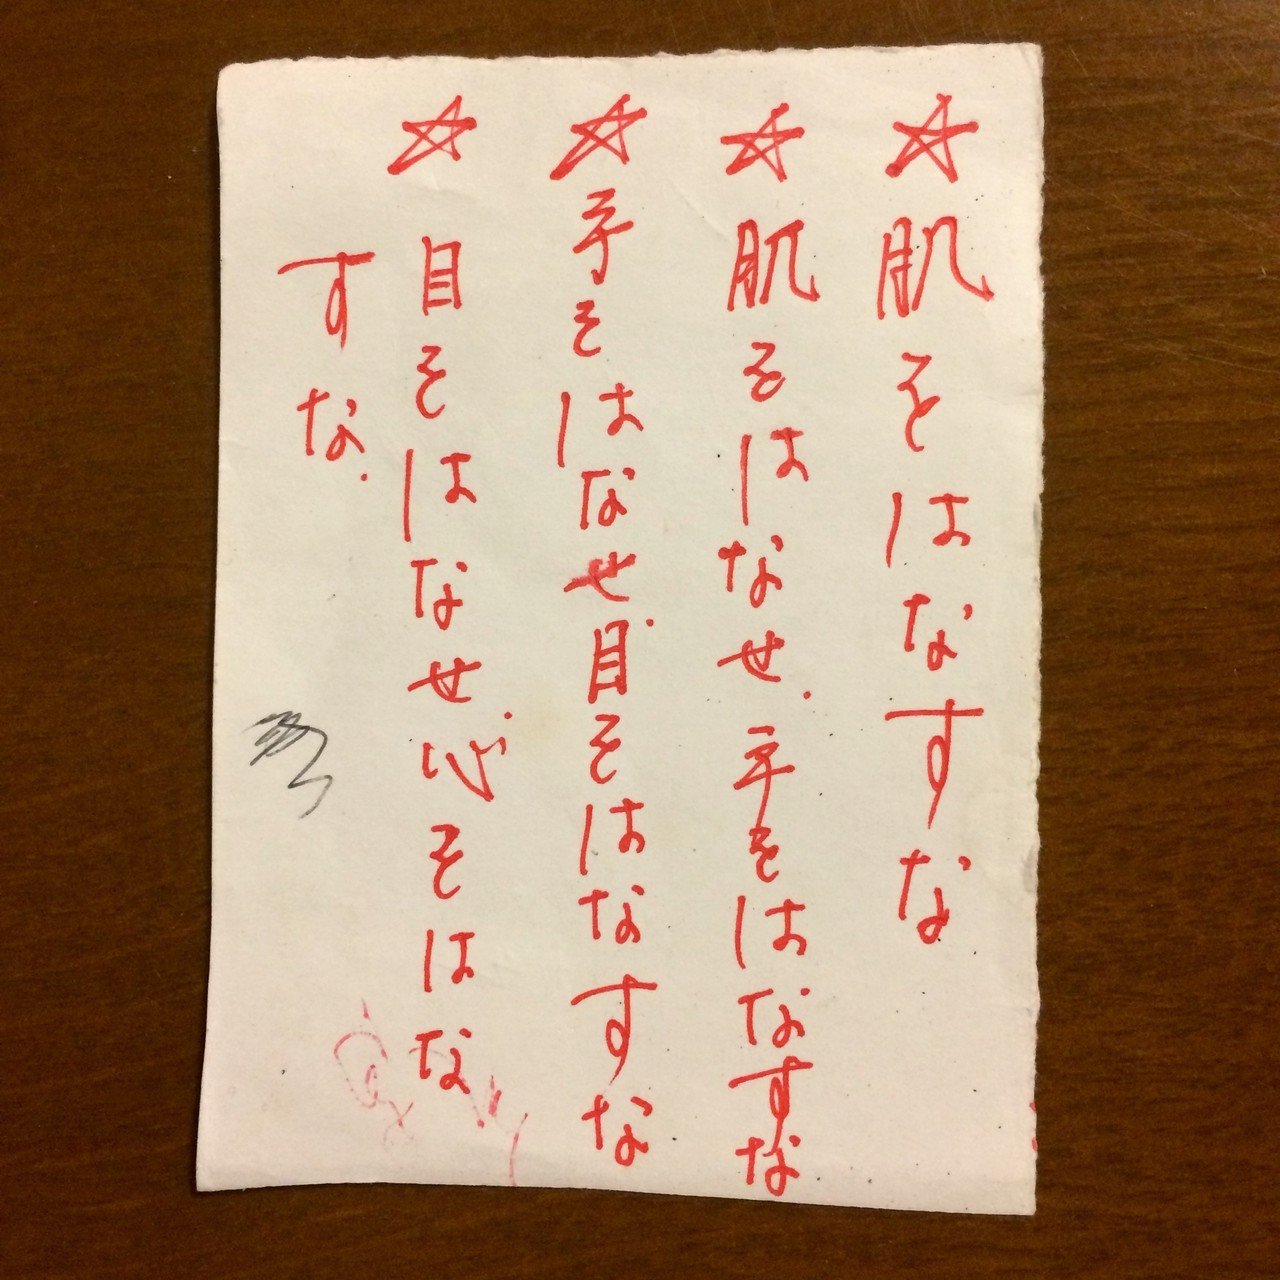 ☆肌をはなすな
☆肌をはなせ.手をはなすな
☆手をはなせ.目をはなすな
☆目をはなせ.心をはな
すな.